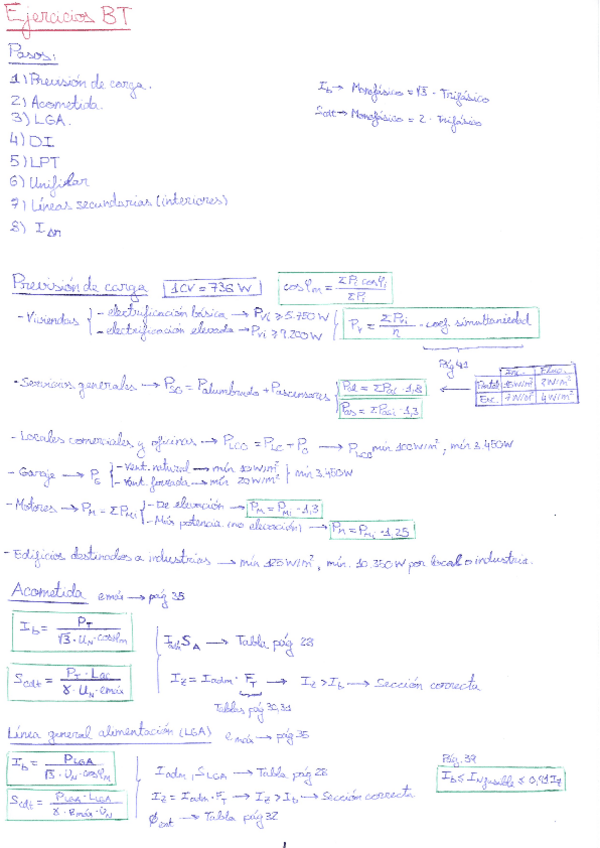 Ejercicios BT
Pasos:
1) Previsión de carga.
2) Acometida.
3) LGA.
4) DI
5) LPT
6) Unifilar
7) Líneas secundarias (interiores)
8) IΔn
Ib → Monofásico = √3 · Trifásico
Scdt → Monofásico = 2 · Trifásico
Previsión de carga 1CV = 736 W cosφm = ΣPi cosφi / ΣPi
- Viviendas { - electrificación básica → Pvi ≥ 5.750 W
- electrificación elevada → Pvi ≥ 9.200 W
Pv = ΣPvi / n · coef. simultaneidad
Pág 41
- Servicios generales → PSG = Palumbrado + Pascensores
Pal = ΣPal · 1,8
Pas = ΣPasi · 1,3
Inc. Fluo.
Portal 15 W/m² 8 W/m²
Esc. 7 W/m² 4 W/m²
- Locales comerciales y oficinas → PLCO = PLC + PO → PLCO mín 100 W/m², mín. 3.450 W
- Garaje → PG { - Vent. natural → mín 10 W/m²
- Vent. forzada → mín 20 W/m² } mín 3.450 W
- Motores → PM = ΣPMi { - De elevación → PM = PMi · 1,3
- Más potencia (no elevación) → PM = PMi · 1,25
- Edificios destinados a industrias → mín 125 W/m², mín. 10.350 W por local o industria.
Acometida emáx → pág 35
Ib = PT / √3 · UN · cosφm
Scdt = PT · Lac / γ · UN · emáx
Iadm SA → Tabla pág 28
IZ = Iadm · FT → IZ > Ib → Sección correcta
Tablas pág 30,31
Línea general alimentación (LGA) emáx → pág 36
Ib = PLGA / √3 · UN · cosφM
Scdt = PLGA · LLGA / γ · emáx · UN
Iadm, SLGA → Tabla pág 28
IZ = Iadm · FT → IZ > Ib → Sección correcta
Øext → Tabla pág 32
Pág. 39
Ib ≤ IN fusible ≤ 0,91 IZ
1